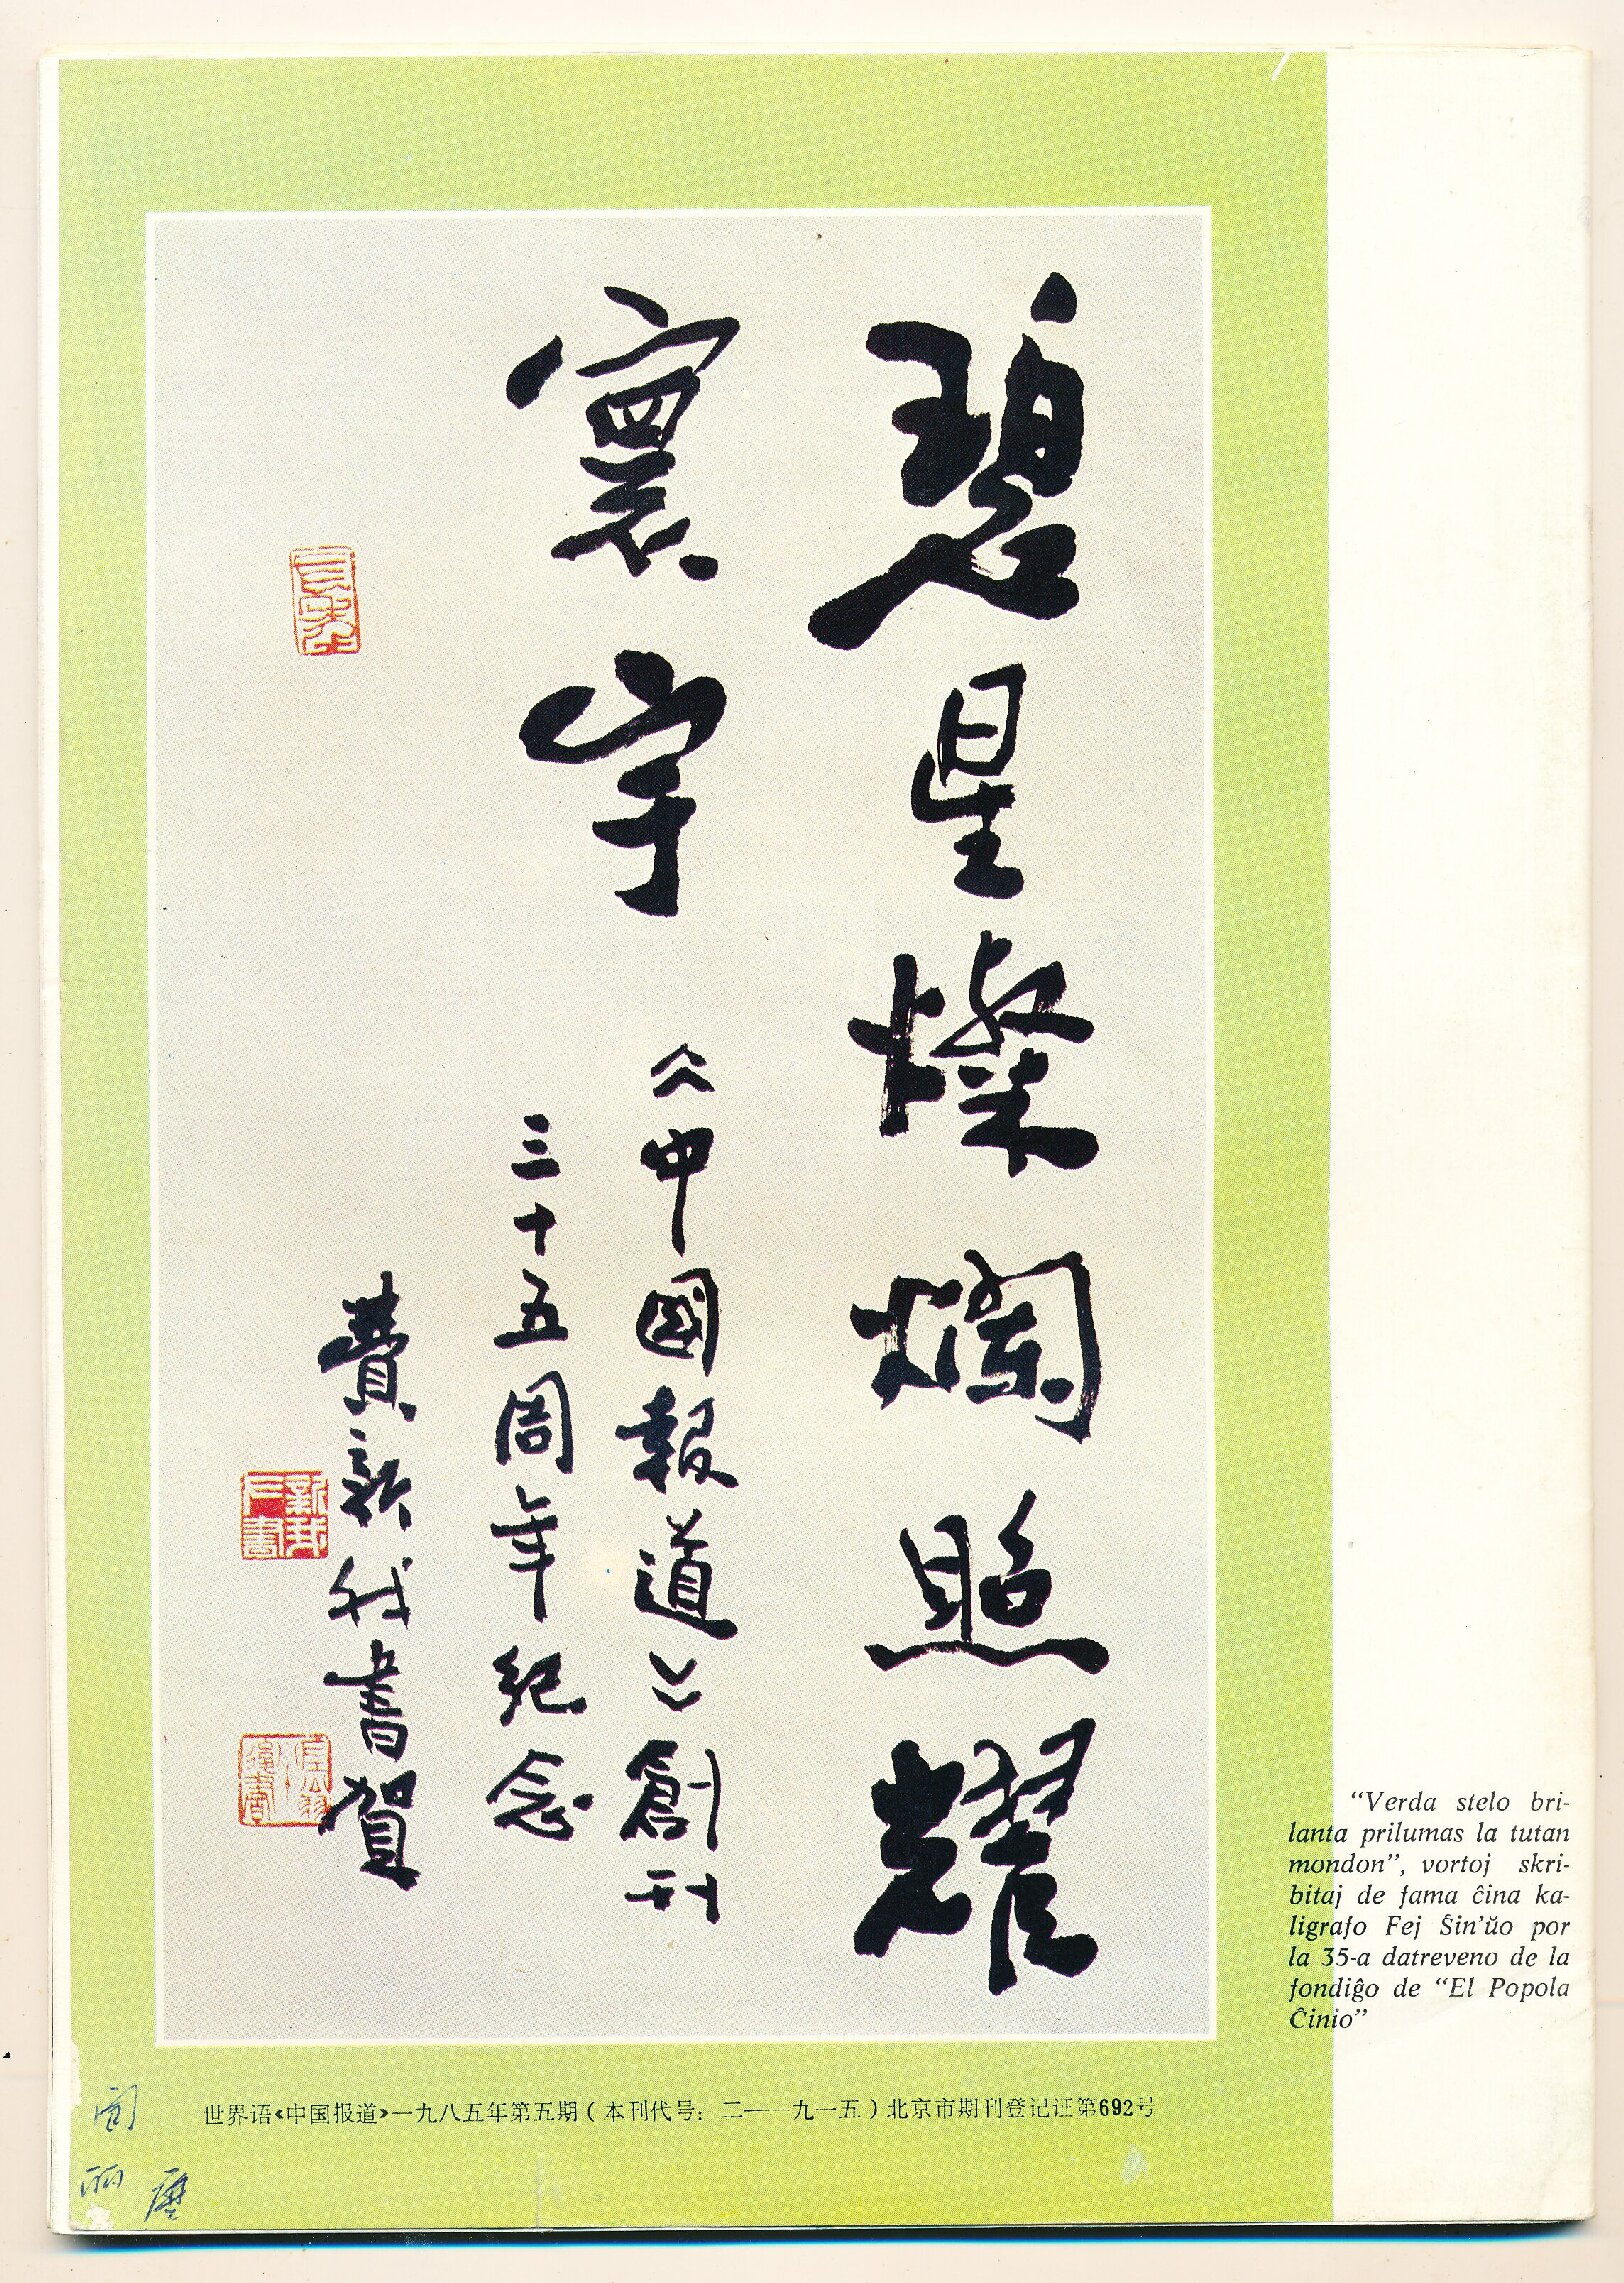 碧星燦爛照耀
寰宇
《中國報道》創刊
三十五周年紀念
費新我書賀
新我
左書
"Verda stelo bri-
lanta prilumas la tutan
mondon", vortoj skri-
bitaj de fama ĉina ka-
ligrafo Fej Ŝin'ŭo por
la 35-a datreveno de la
fondiĝo de "El Popola
Ĉinio"
世界语《中国报道》一九八五年第五期（本刊代号：二——九一五）北京市期刊登记证第692号